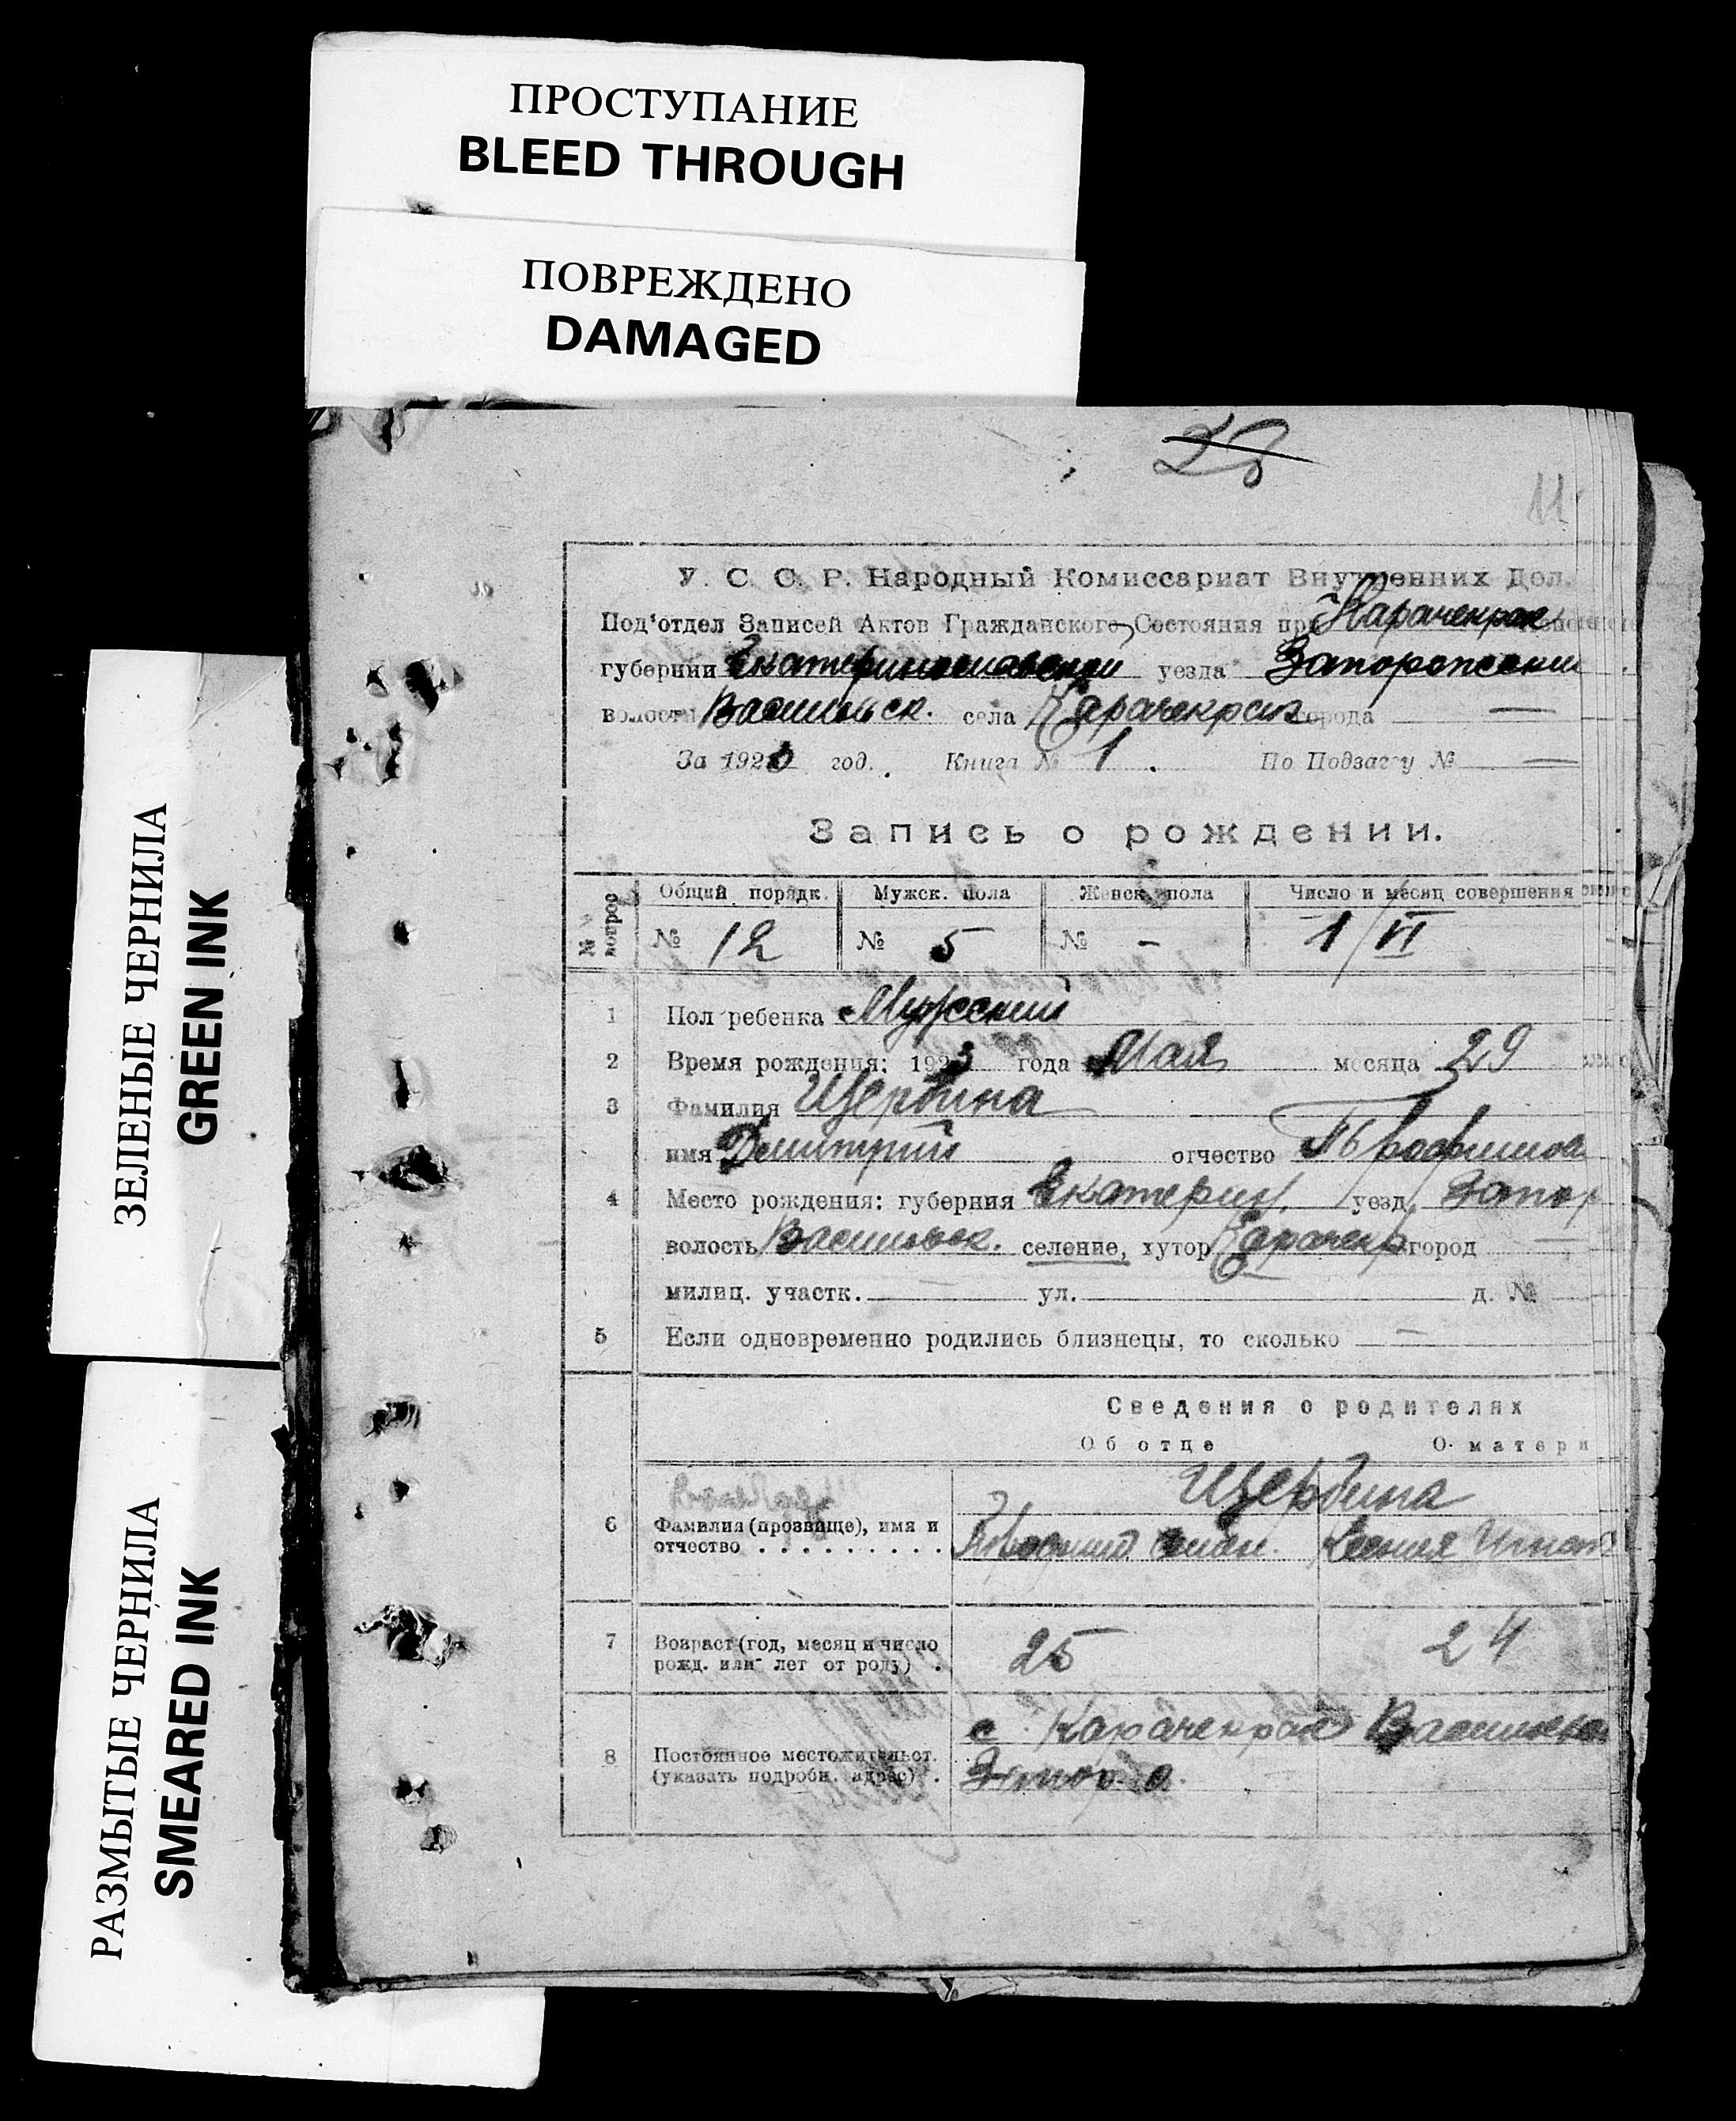 ПРОСТУПАНИЕ
BLEED THROUGH
ПОВРЕЖДЕНО
DAMAGED
ЗЕЛЕНЫЕ ЧЕРНИЛА
GREEN INK
РАЗМЫТЫЕ ЧЕРНИЛА
SMEARED INK
28
11
У. С. С. Р. Народный Комиссариат Внутренних Дел.
Под'отдел Записей Актов Гражданского Состояния при Карачекрак
губернии Екатеринославской уезда Запорожский
волости Васильевск. села Карачекрак города —
За 1923 год. Книга № 1. По Подзагсу № —
Запись о рождении.
№ вопрос Общий порядк. Мужск. пола Женск. пола Число и месяц совершения
№ 12 № 5 № - 1/VI
1 Пол ребенка Мужский
2 Время рождения: 1923 года Мая месяца 29
3 Фамилия Щербина
имя Димитрий отчество Трофимов
4 Место рождения: губерния Екатерин. уезд Запор
волость Васильевск. селение, хутор Карачекр город —
милиц. участк. — ул. д. №
5 Если одновременно родились близнецы, то сколько —
Сведения о родителях
Об отце О матери
Щербина
6 Фамилия (прозвище), имя и
отчество . . . . . . . . . Трофим Ксения Игнат
7 Возраст (год, месяц и число
рожд. или лет от роду) . 25 24
8 Постоянное местожительст.
(указать подробн. адрес) .
с. Карачекрак Васильевск
Запор. о.